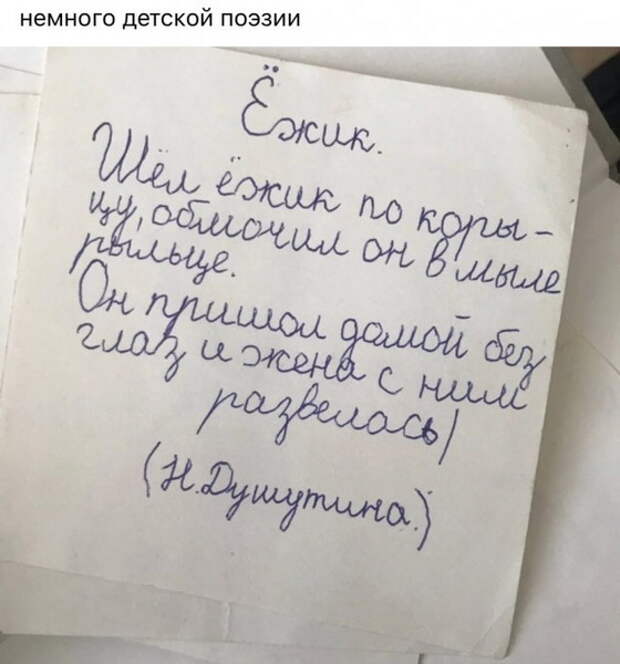 немного детской поэзии
Ёжик.
Шёл ёжик по коры-
цу, обмочил он в мыле
рыльце.
Он пришол домой без
глаз и жена с ним
развелась)
(Н.Душутина.)